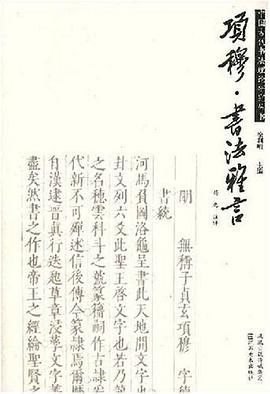 中國古代書法理論研究叢書
項穆·書法雅言
徐利明 主編
明 無稱子貞玄項穆 字德
書統
河馬負圖洛龜呈書此天地開文字也羲
卦文列六爻此聖王啓文字也若乃
之名穗雲科斗之號篆籀嗣作古隸爰
代新不可殫述信後傳今篆隸焉爾歷
自漢逮晉真行迭起章草浸孳文字菁
盡矣然書之作也帝王之經綸聖賢之